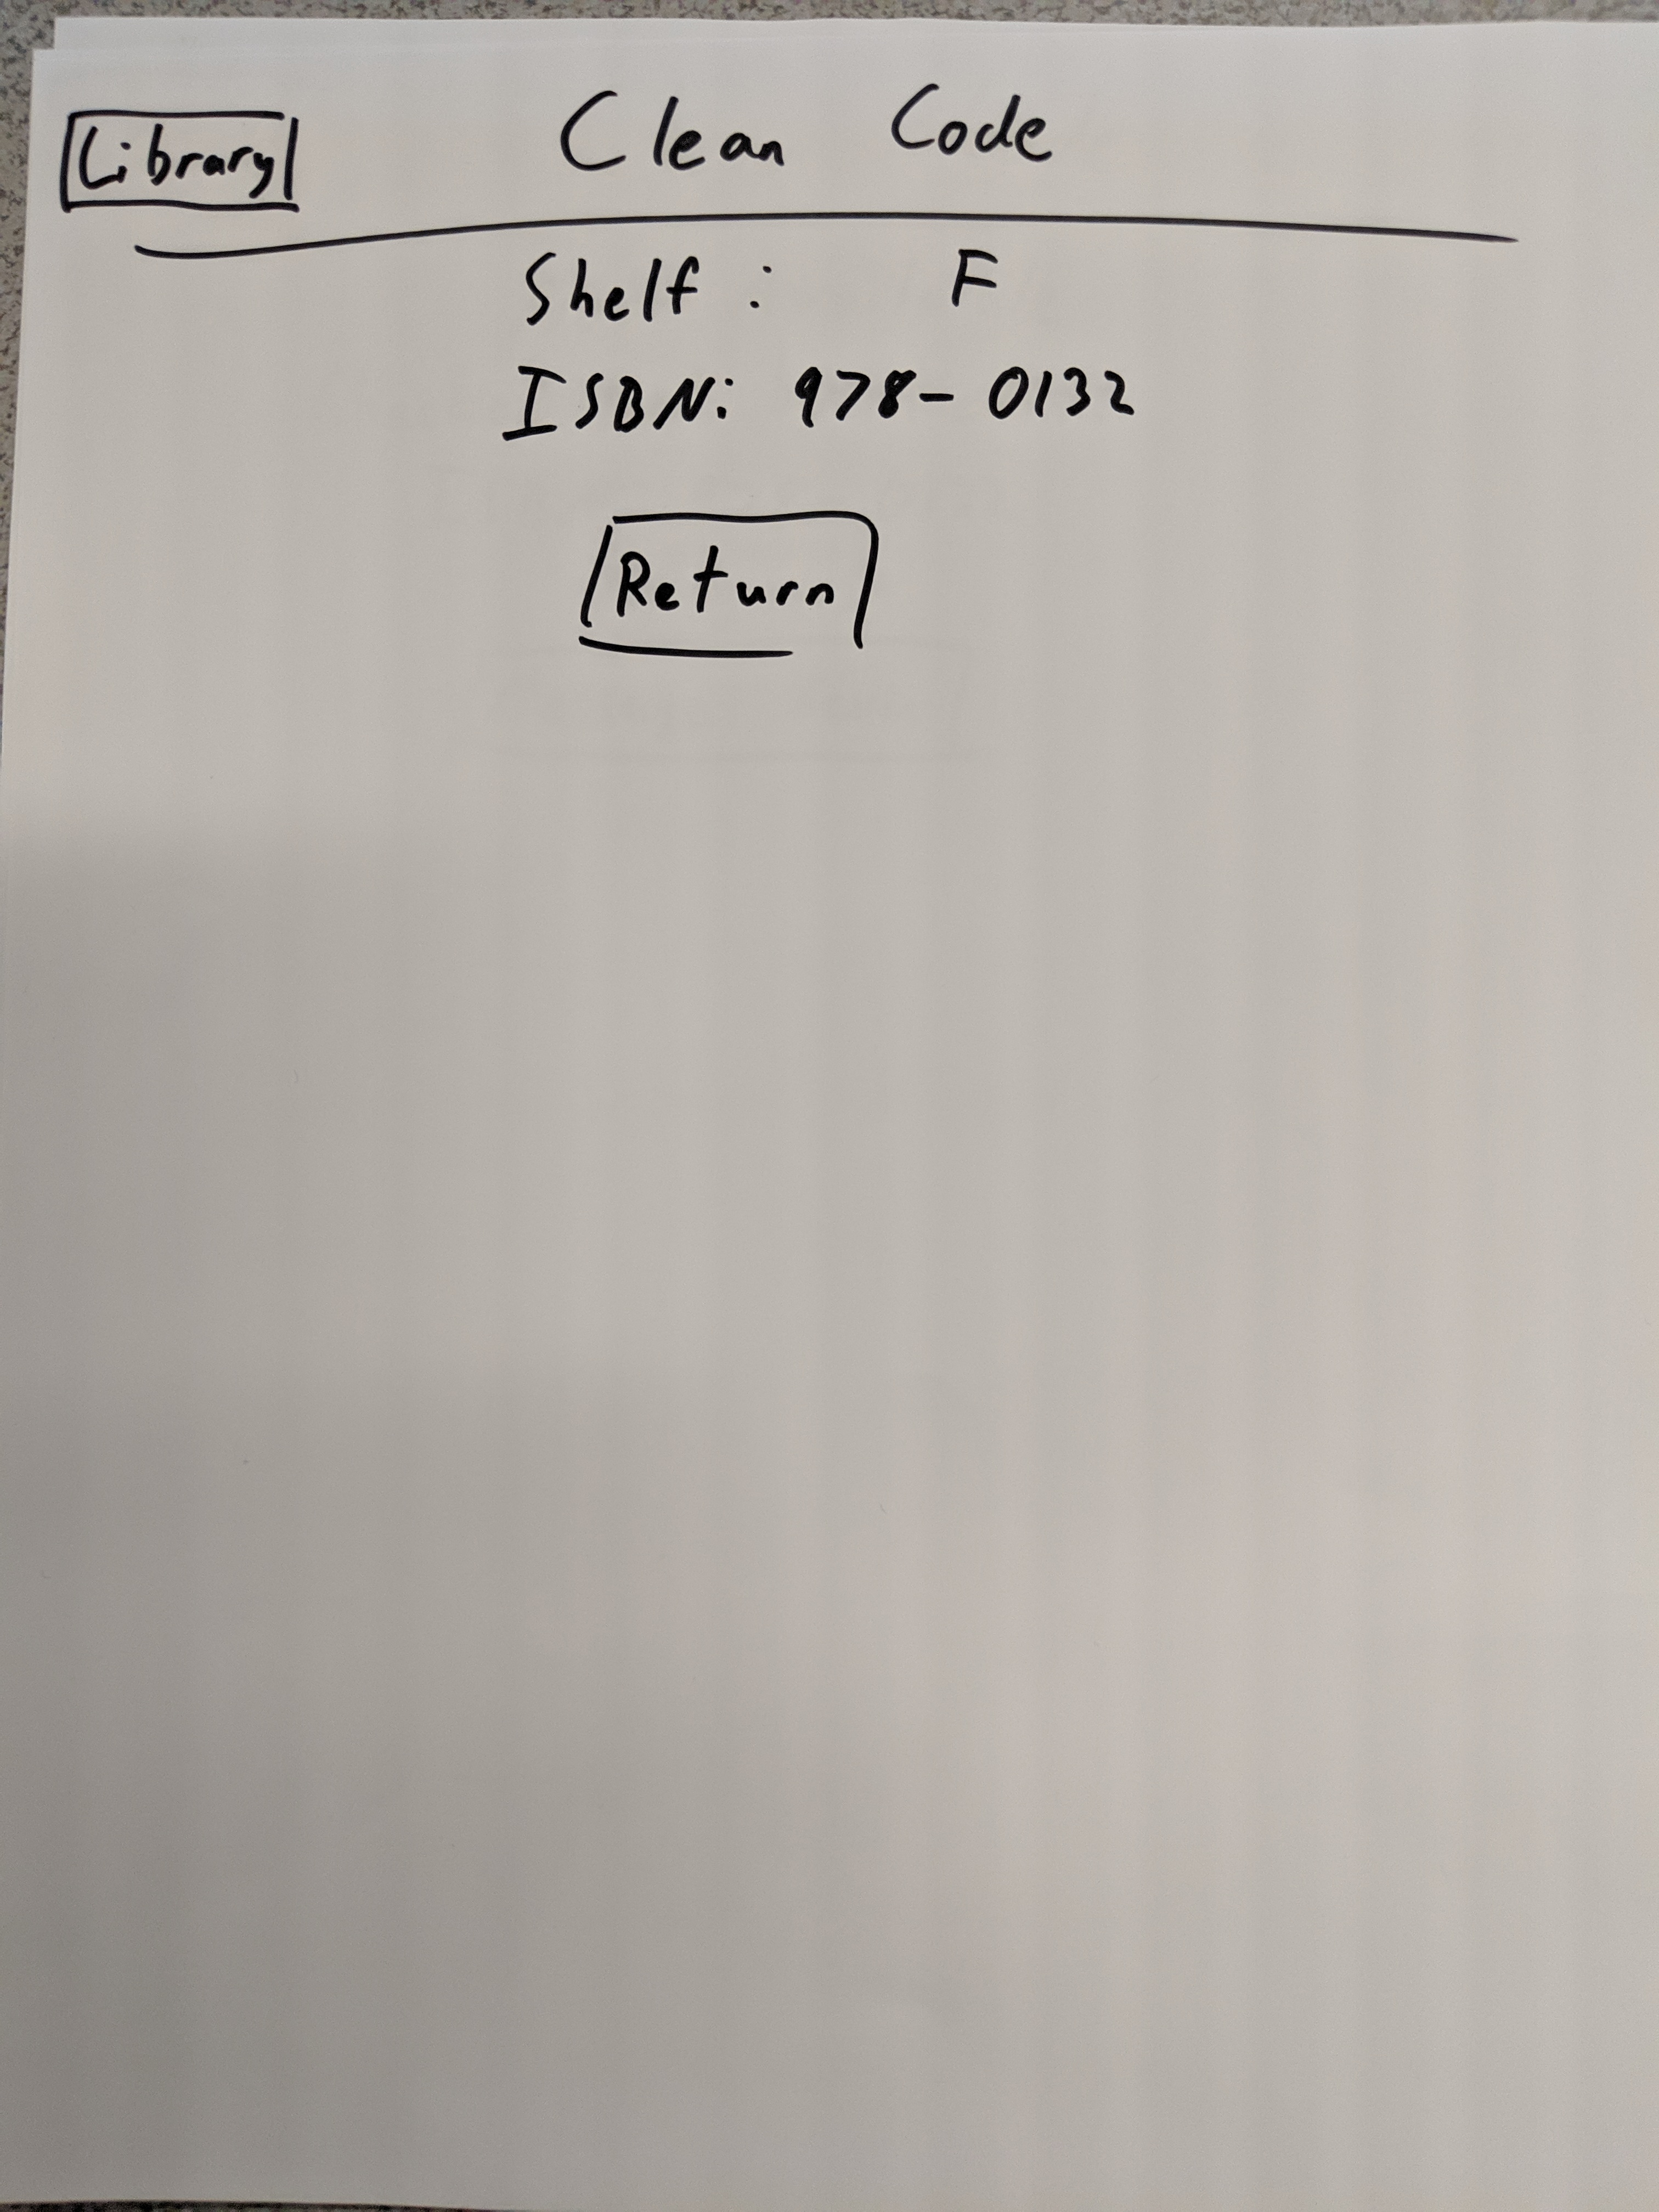 Library
Clean Code
Shelf : F
ISBN: 978-0132
Return